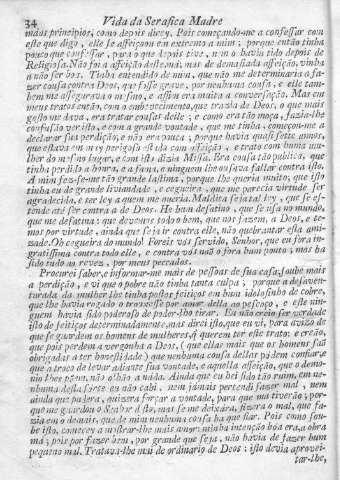 34 Vida da Serafica Madre
máos principios, como depois direy. Pois começando-me a confessar com
este que digo, elle se affeiçoou em extremo a mim; porque então tinha
pouco que confessar, para o que depois tive, nem o havia tido depois de
Religiosa. Não foi a affeição deste má; mas de demasiada affeição, vinha
a não ser boa. Tinha entendido de mim, que não me determinaria a fa-
zer cousa contra Deos, que fosse grave, por nenhuma cousa, e elle tam-
bem me assegurava o mesmo, e assim era muita a conversação. Mas em
meus tratos então, com o embevecimento, que trazia de Deos, o que mais
gosto me dava, era tratar cousas delle; e como era tão moça, fazia-lhe
confusão ver isto, e com a grande vontade, que me tinha, começou-me a
declarar sua perdição, e não era pouca; porque havia quasi sette annos,
que estava em muy perigoso estado com affeição, e trato com huma mu-
lher do mesmo lugar, e com isto dizia Missa. Era cousa tão publica, que
tinha perdido a honra, e a fama, e ninguem lhe ousava fallar contra isto.
A mim fez-se-me tão grande lastima, porque lhe queria muito, que isto
tinha eu de grande liviandade, e cegueira, que me parecia virtude ser
agradecida, e ter ley a quem me queria. Maldita seja tal ley, que se es-
tende até ser contra a de Deos. He hum desatino, que se usa no mundo,
que me desatina: que devemos todo o bem, que nos fazem, a Deos, e te-
mos por virtude, ainda que seja ir contra elle, não quebrantar esta ami-
zade. Oh cegueira do mundo! Foreis vós servido, Senhor, que eu fora in-
gratissima contra todo elle, e contra vós não o fora hum ponto; mas ha
sido tudo ao revez, por meus peccados.
Procurei saber, e informar-me mais de pessoas de sua casa, soube mais
a perdição, e vi que o pobre não tinha tanta culpa; porque a desaven-
turada da mulher lhe tinha postos feitiços em hum idolosinho de cobre,
que lhe havia rogado o trouxesse por amor della ao pescoço, e este nin-
guem havia sido poderoso de poder-lho tirar. Eu não creio ser verdade
isto de feitiços determinadamente, mas direi isto, que eu vi, para aviso de
que se guardem os homens de mulheres, que querem ter este trato: e crêão,
que pois perdem a vergonha a Deos, (que ellas mais que os homens são
obrigadas a ter honestidade) que nenhuma cousa dellas pódem confiar, e
que a troco de levar adiante sua vontade, e aquella affeição, que o demo-
nio lhes põem, não olhão a nada. Ainda que eu hei sido tão ruim, em ne-
nhuma desta sorte eu não cahi, nem já mais pertendi fazer mal, nem
ainda que pudera, quizera forçar a vontade, para que ma tiverão; por-
que me guardou o Senhor disto, mas se me deixára, fizera o mal, que fa-
zia em o demais, que de mim nenhuma cousa ha que fiar. Pois como sou-
be isto, comecey a mostrar-lhe mais amor: minha intenção boa era, a obra
má; pois por fazer bem, por grande que seja, não havia de fazer hum
pequeno mal. Tratava-lhe mui de ordinario de Deos: isto devia aprovei-
tar-lhe,